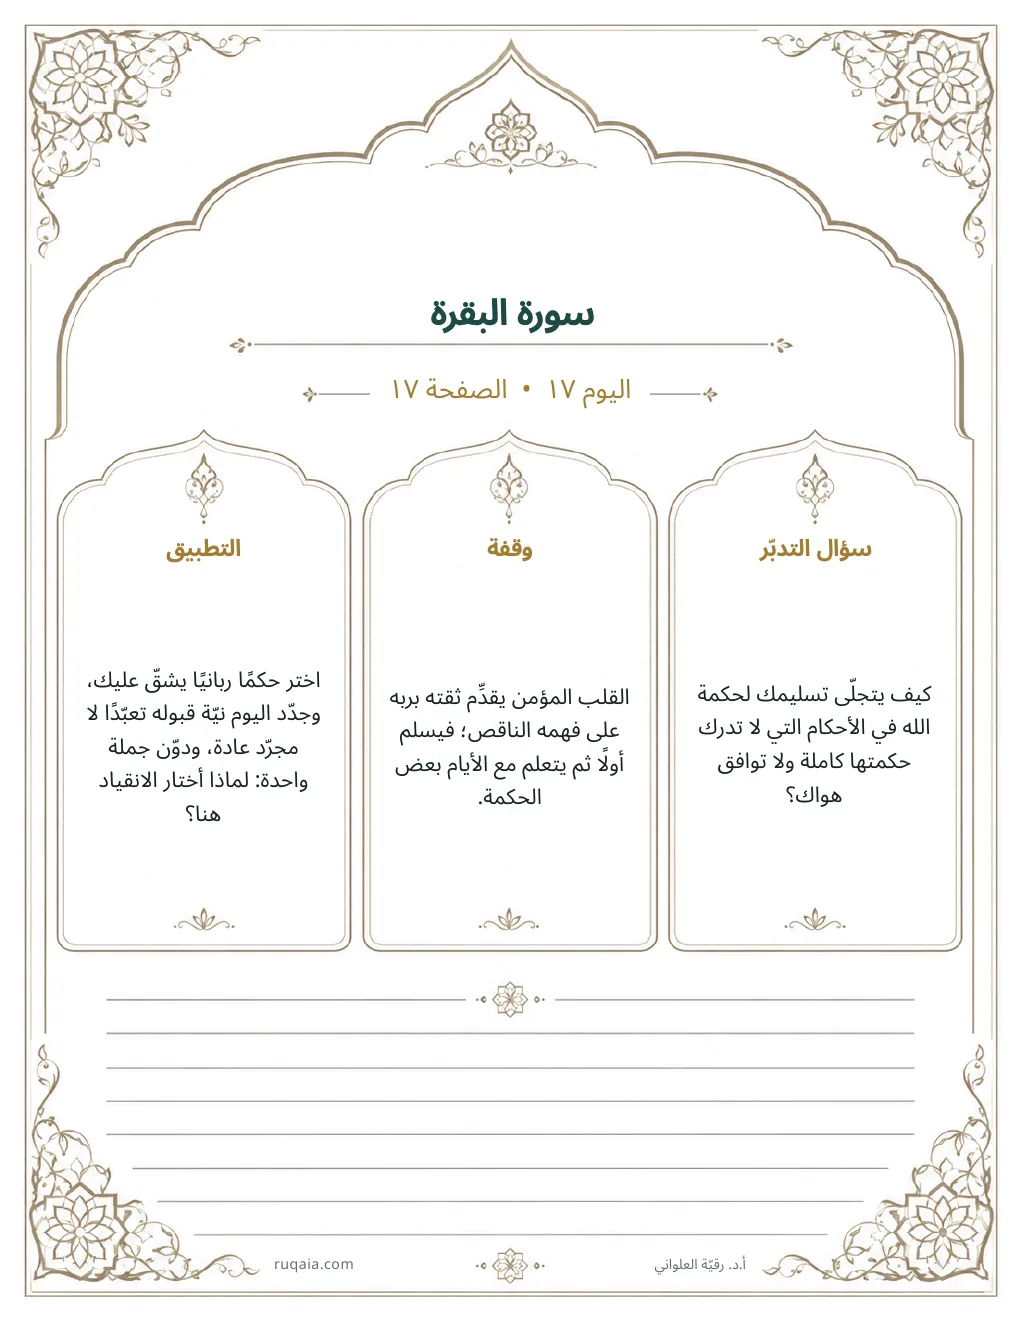 سورة البقرة
اليوم ١٧ • الصفحة ١٧
سؤال التدبّر
كيف يتجلّى تسليمك لحكمة
الله في الأحكام التي لا تدرك
حكمتها كاملة ولا توافق
هواك؟
وقفة
القلب المؤمن يقدِّم ثقته بربه
على فهمه الناقص؛ فيسلم
أولًا ثم يتعلم مع الأيام بعض
الحكمة.
التطبيق
اختر حكمًا ربانيًا يشقّ عليك،
وجدّد اليوم نيّة قبوله تعبّدًا لا
مجرّد عادة، ودوّن جملة
واحدة: لماذا أختار الانقياد
هنا؟
أ.د. رقيّة العلواني
ruqaia.com